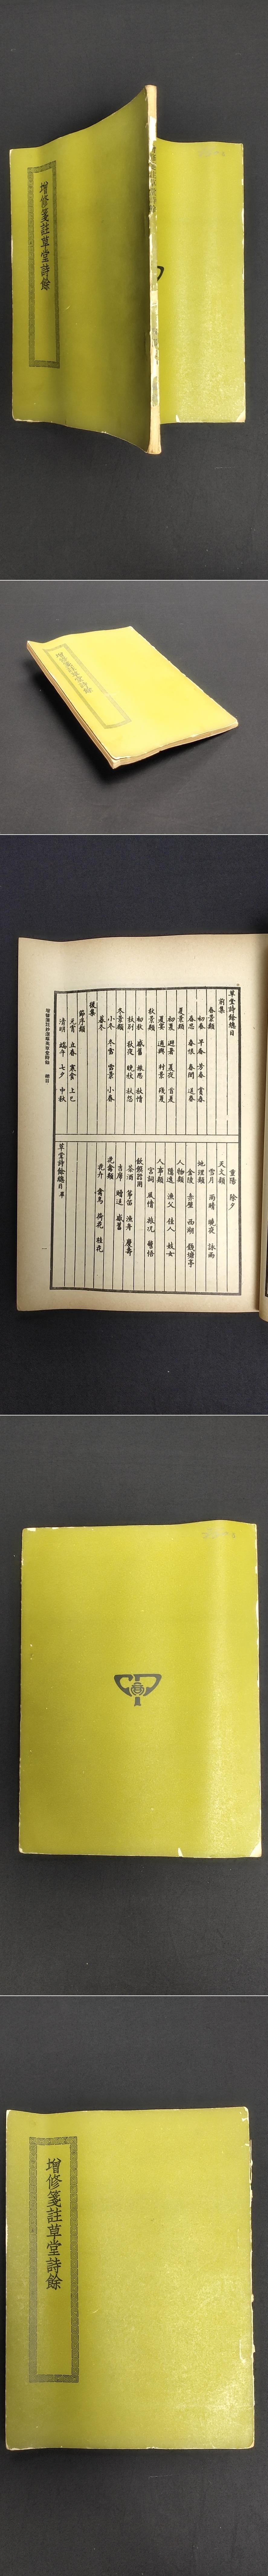 增修箋註草堂詩餘
增修箋註草堂詩餘
草堂詩餘總目
前集
春景類
初春 早春 芳春 賞春
春思 春恨 春閨 送春
夏景類
初夏 避暑 夏夜 首夏
夏宴 適興 村景 殘夏
秋景類
初秋 感舊 旅思 秋情
秋別 秋夜 晚秋 秋怨
冬景類
小冬 冬雪 雪景 小春
暮冬
後集
節序類
元宵 立春 寒食 上巳
清明 端午 七夕 中秋
重陽 除夕
天文類
雪月 雨晴 曉夜 詠雨
地理類
金陵 赤壁 西湖 錢塘亭
人物類
隱逸 漁父 佳人 妓女
人事類
宮詞 風情 旅況 警悟
飲饌器用
茶酒 箏笛 漁舟 慶壽
吉席 贈送 感舊
花禽類
花卉 禽鳥 荷花 桂花
草堂詩餘總目畢
總目
一
增修箋註草堂詩餘